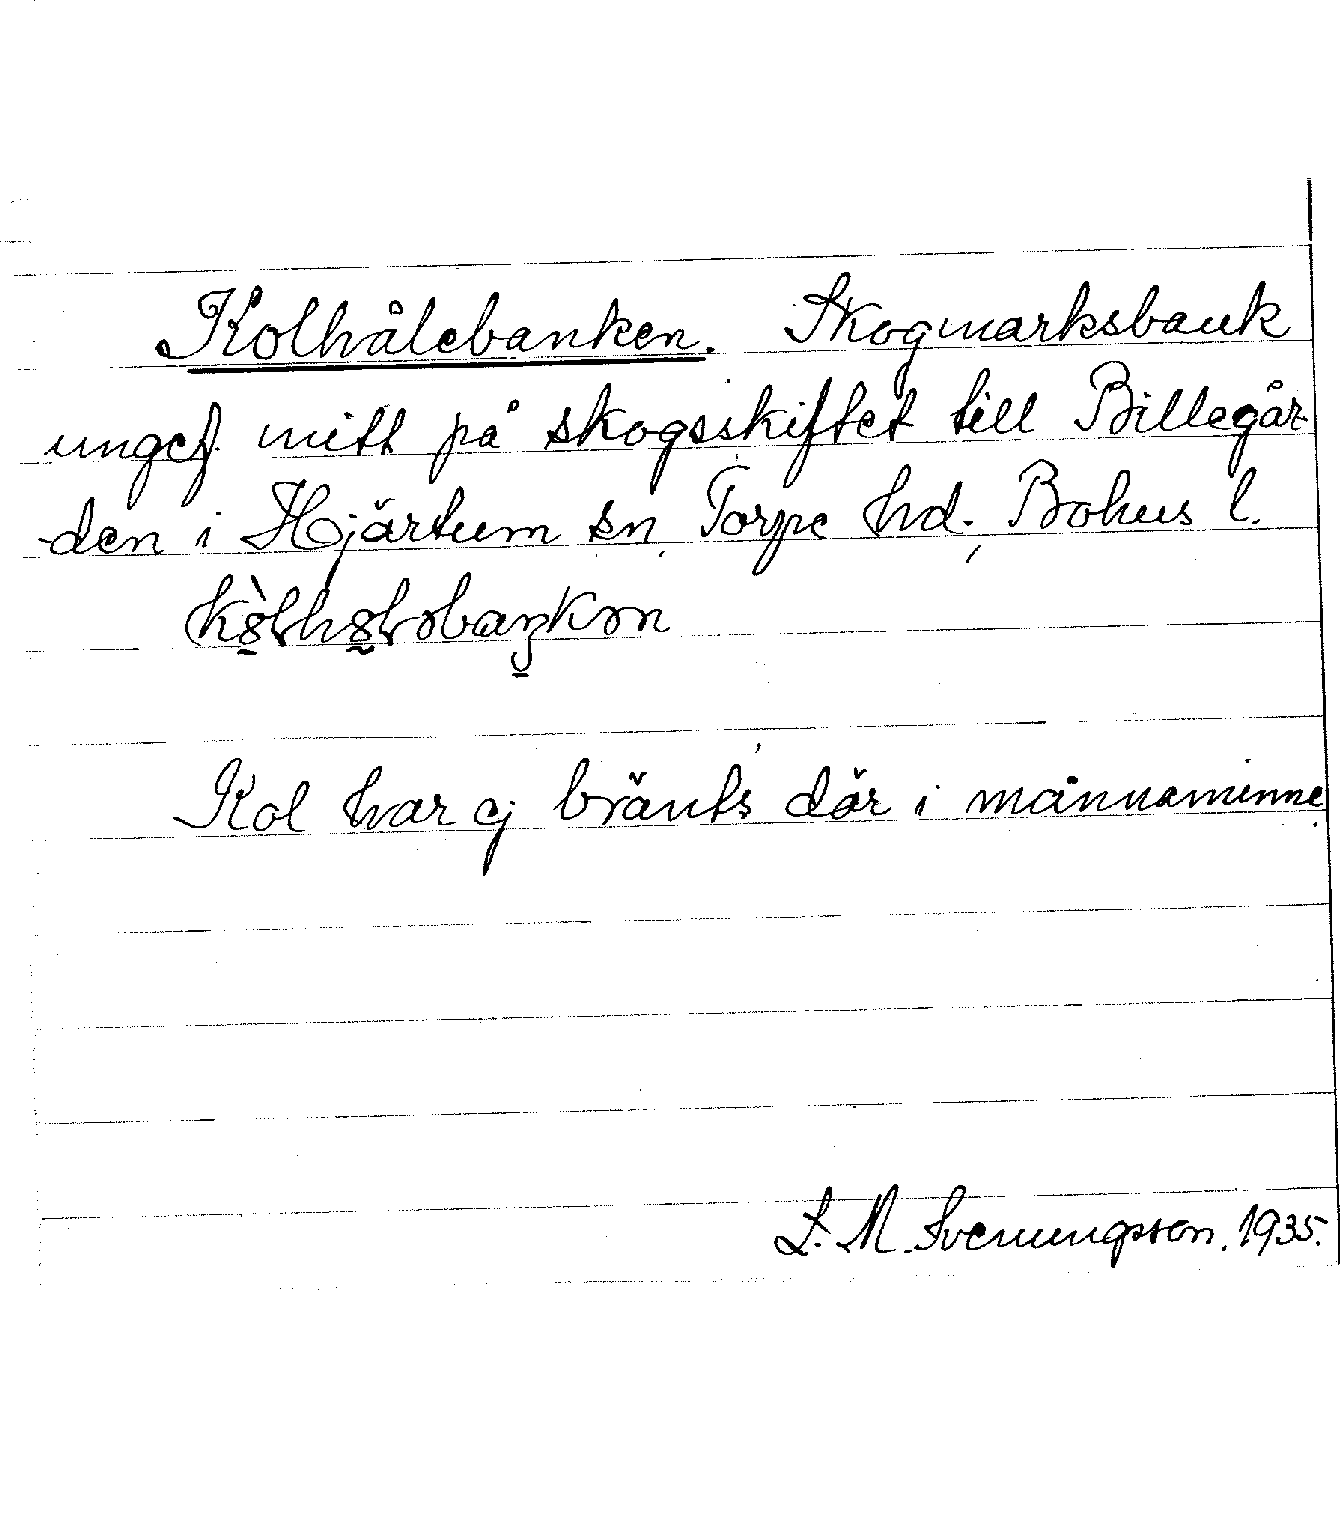 Kolhålebanken. Skogmarksbank
ungef. mitt på skogsskiftet till Billegår-
den i Hjärtum sn, Torpe hd., Bohus l.
Kol har ej bränts där i mannaminne.
L. M. Svenungsson. 1935.